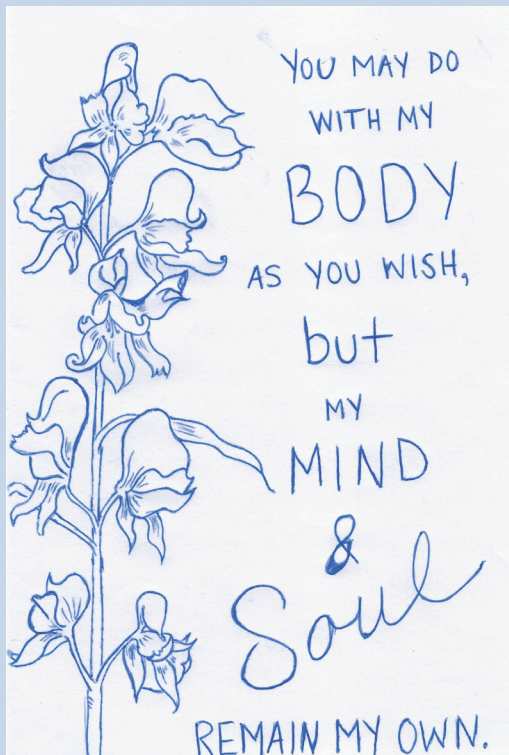 YOU MAY DO
WITH MY
BODY
AS YOU WISH,
but
MY
MIND
&
Soul
REMAIN MY OWN.